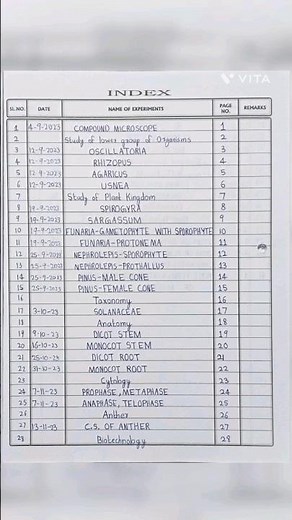 VITA
INDEX
SL.NO. DATE NAME OF EXPERIMENTS PAGE NO. REMARKS
1 4-9-2023 COMPOUND MICROSCOPE 1
2 Study of lower group of Organisms 2
3 12-9-2023 OSCILLATORIA 3
4 12-9-2023 RHIZOPUS 4
5 12-9-2023 AGARICUS 5
6 12-9-2023 USNEA 6
7 Study of Plant Kingdom 7
8 19-9-2023 SPIROGYRA 8
9 19-9-2023 SARGASSUM 9
10 19-9-2023 FUNARIA-GAMETOPHYTE WITH SPOROPHYTE 10
11 19-9-2023 FUNARIA-PROTONEMA 11
12 25-9-2023 NEPHROLEPIS-SPOROPHYTE 12
13 25-9-2023 NEPHROLEPIS-PROTHALLUS 13
14 25-9-2023 PINUS-MALE CONE 14
15 25-9-2023 PINUS-FEMALE CONE 15
16 Taxonomy 16
17 3-10-23 SOLANACEAE 17
18 Anatomy 18
19 9-10-23 DICOT STEM 19
20 16-10-23 MONOCOT STEM 20
21 25-10-23 DICOT ROOT 21
22 31-10-23 MONOCOT ROOT 22
23 Cytology 23
24 7-11-23 PROPHASE, METAPHASE 24
25 7-11-23 ANAPHASE, TELOPHASE 25
26 Anther 26
27 13-11-23 C.S. OF ANTHER 27
28 Biotechnology 28